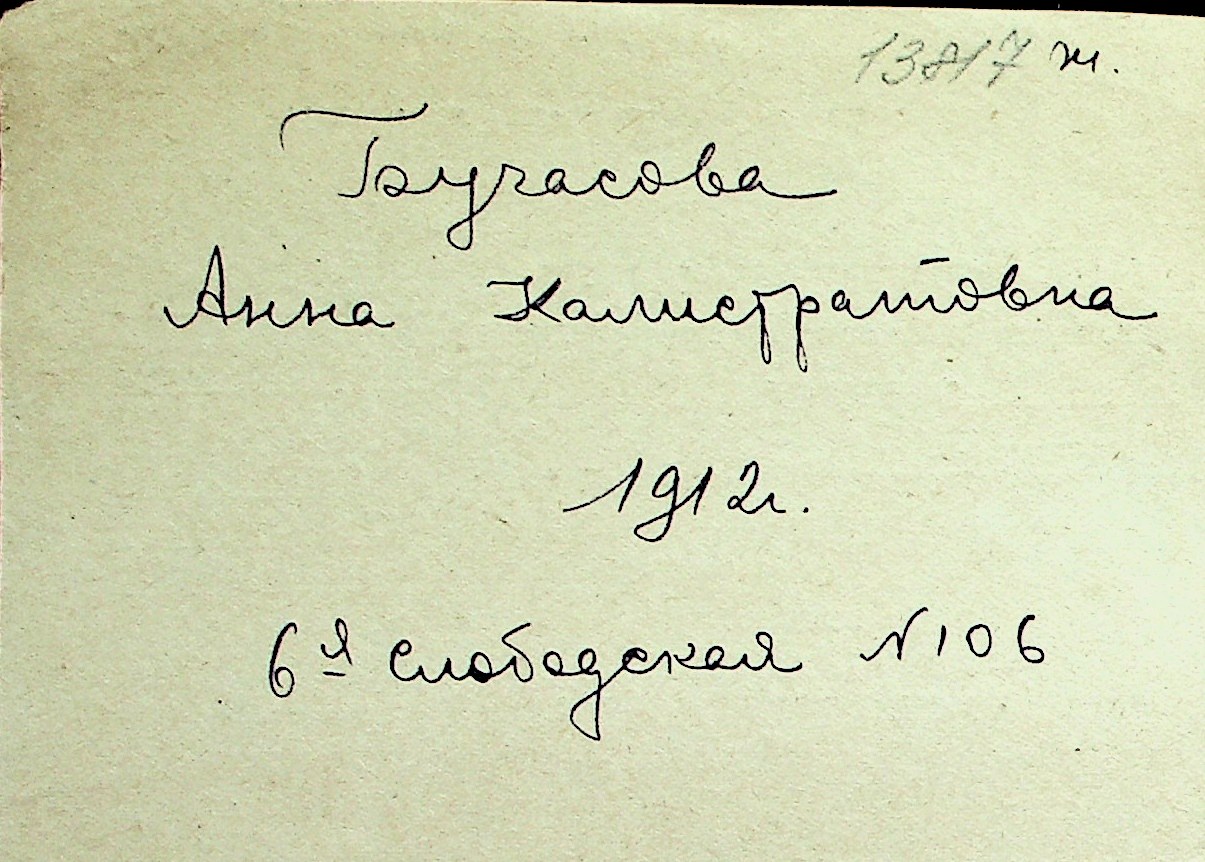 13817 ж.
Бучасова
Анна Калистратовна
1912г.
6-я Слободская N 106